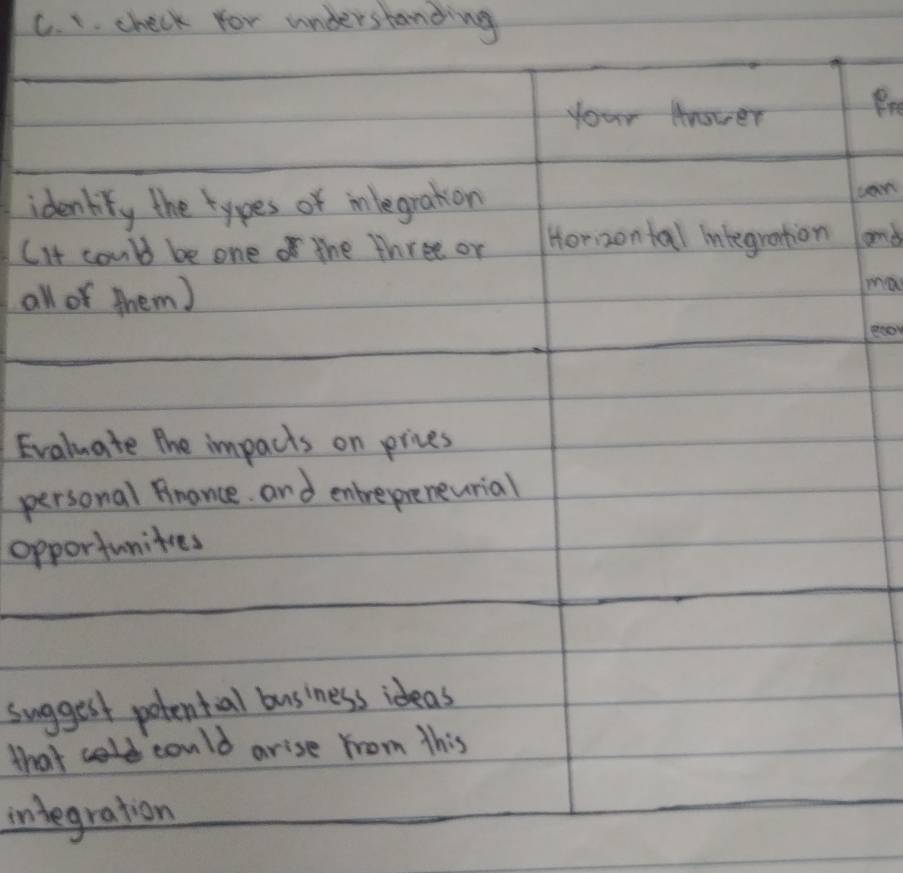 C. 1. check for understanding
Your Answer
identify the types of integration
(It could be one of the three or
all of them)
Horizontal integration
can
and
Evaluate the impacts on prices
personal finance. and entrepreneurial
opportunities
suggest potential business ideas
that could arise from this
integration